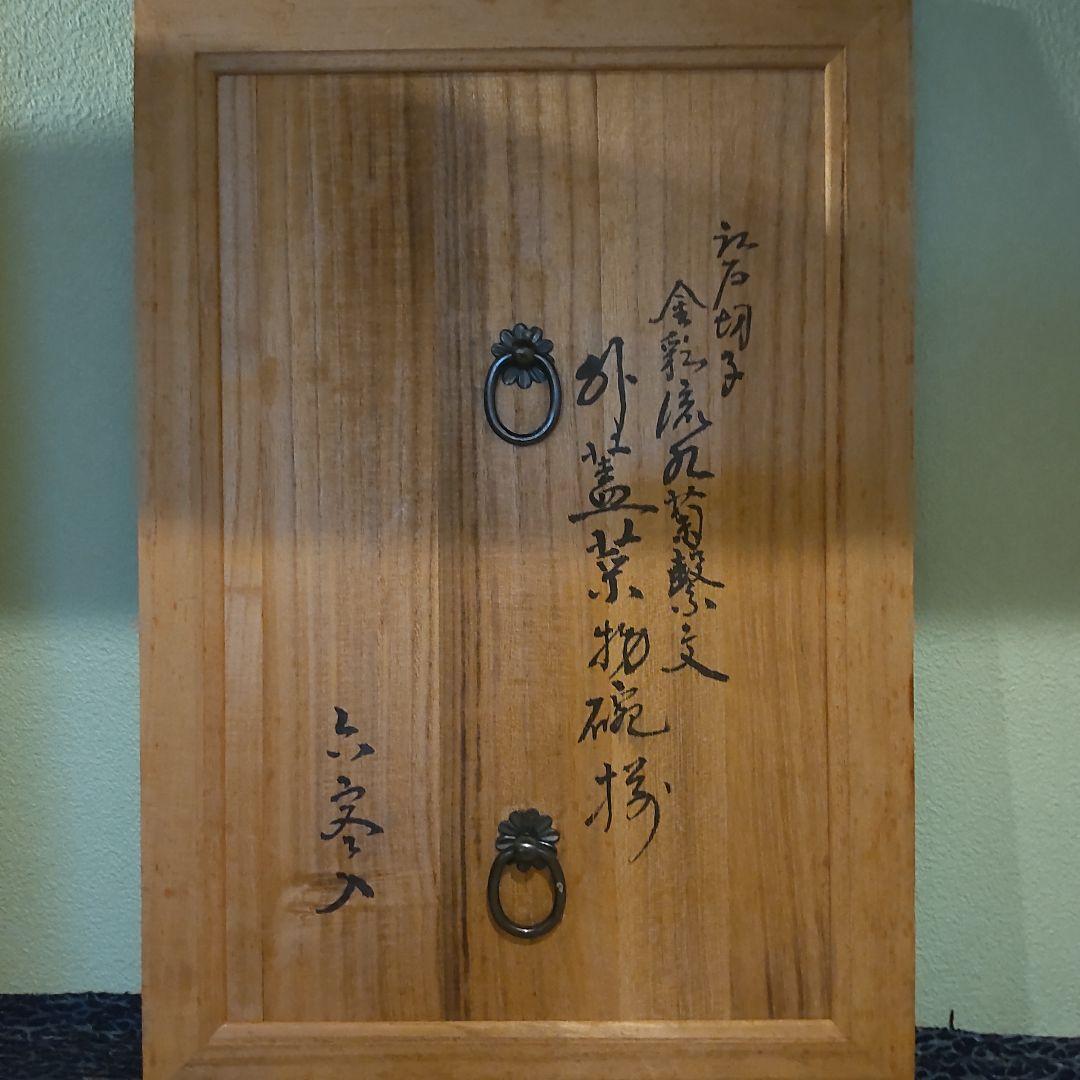 江戸切子
金彩流水菊繋文
外蓋菜物碗揃
六客入